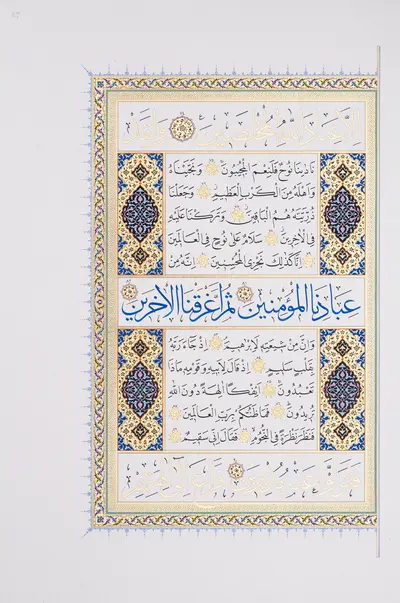 إِلَّا عِبَادَ اللَّهِ الْمُخْلَصِينَ وَلَقَدْ
نَادٰينَا نُوحٌ فَلَنِعْمَ الْمُجِيبُونَ وَنَجَّيْنَاهُ
وَاَهْلَهُ مِنَ الْكَرْبِ الْعَظِيمِ وَجَعَلْنَا
ذُرِّيَّتَهُ هُمُ الْبَاقِينَ وَتَرَكْنَا عَلَيْهِ
فِي الْاٰخِرِينَ سَلَامٌ عَلٰى نُوحٍ فِي الْعَالَمِينَ
اِنَّا كَذٰلِكَ نَجْزِي الْمُحْسِنِينَ اِنَّهُ مِنْ
عِبَادِنَا الْمُؤْمِنِينَ ثُمَّ اَغْرَقْنَا الْاٰخَرِينَ
وَاِنَّ مِنْ شِيعَتِهِ لَاِبْرٰهِيمَ اِذْ جَاءَ رَبَّهُ
بِقَلْبٍ سَلِيمٍ اِذْ قَالَ لِاَبِيهِ وَقَوْمِهِ مَاذَا
تَعْبُدُونَ اَئِفْكًا اٰلِهَةً دُونَ اللّٰهِ
تُرِيدُونَ فَمَا ظَنُّكُمْ بِرَبِّ الْعَالَمِينَ
فَنَظَرَ نَظْرَةً فِي النُّجُومِ فَقَالَ اِنِّي سَقِيمٌ